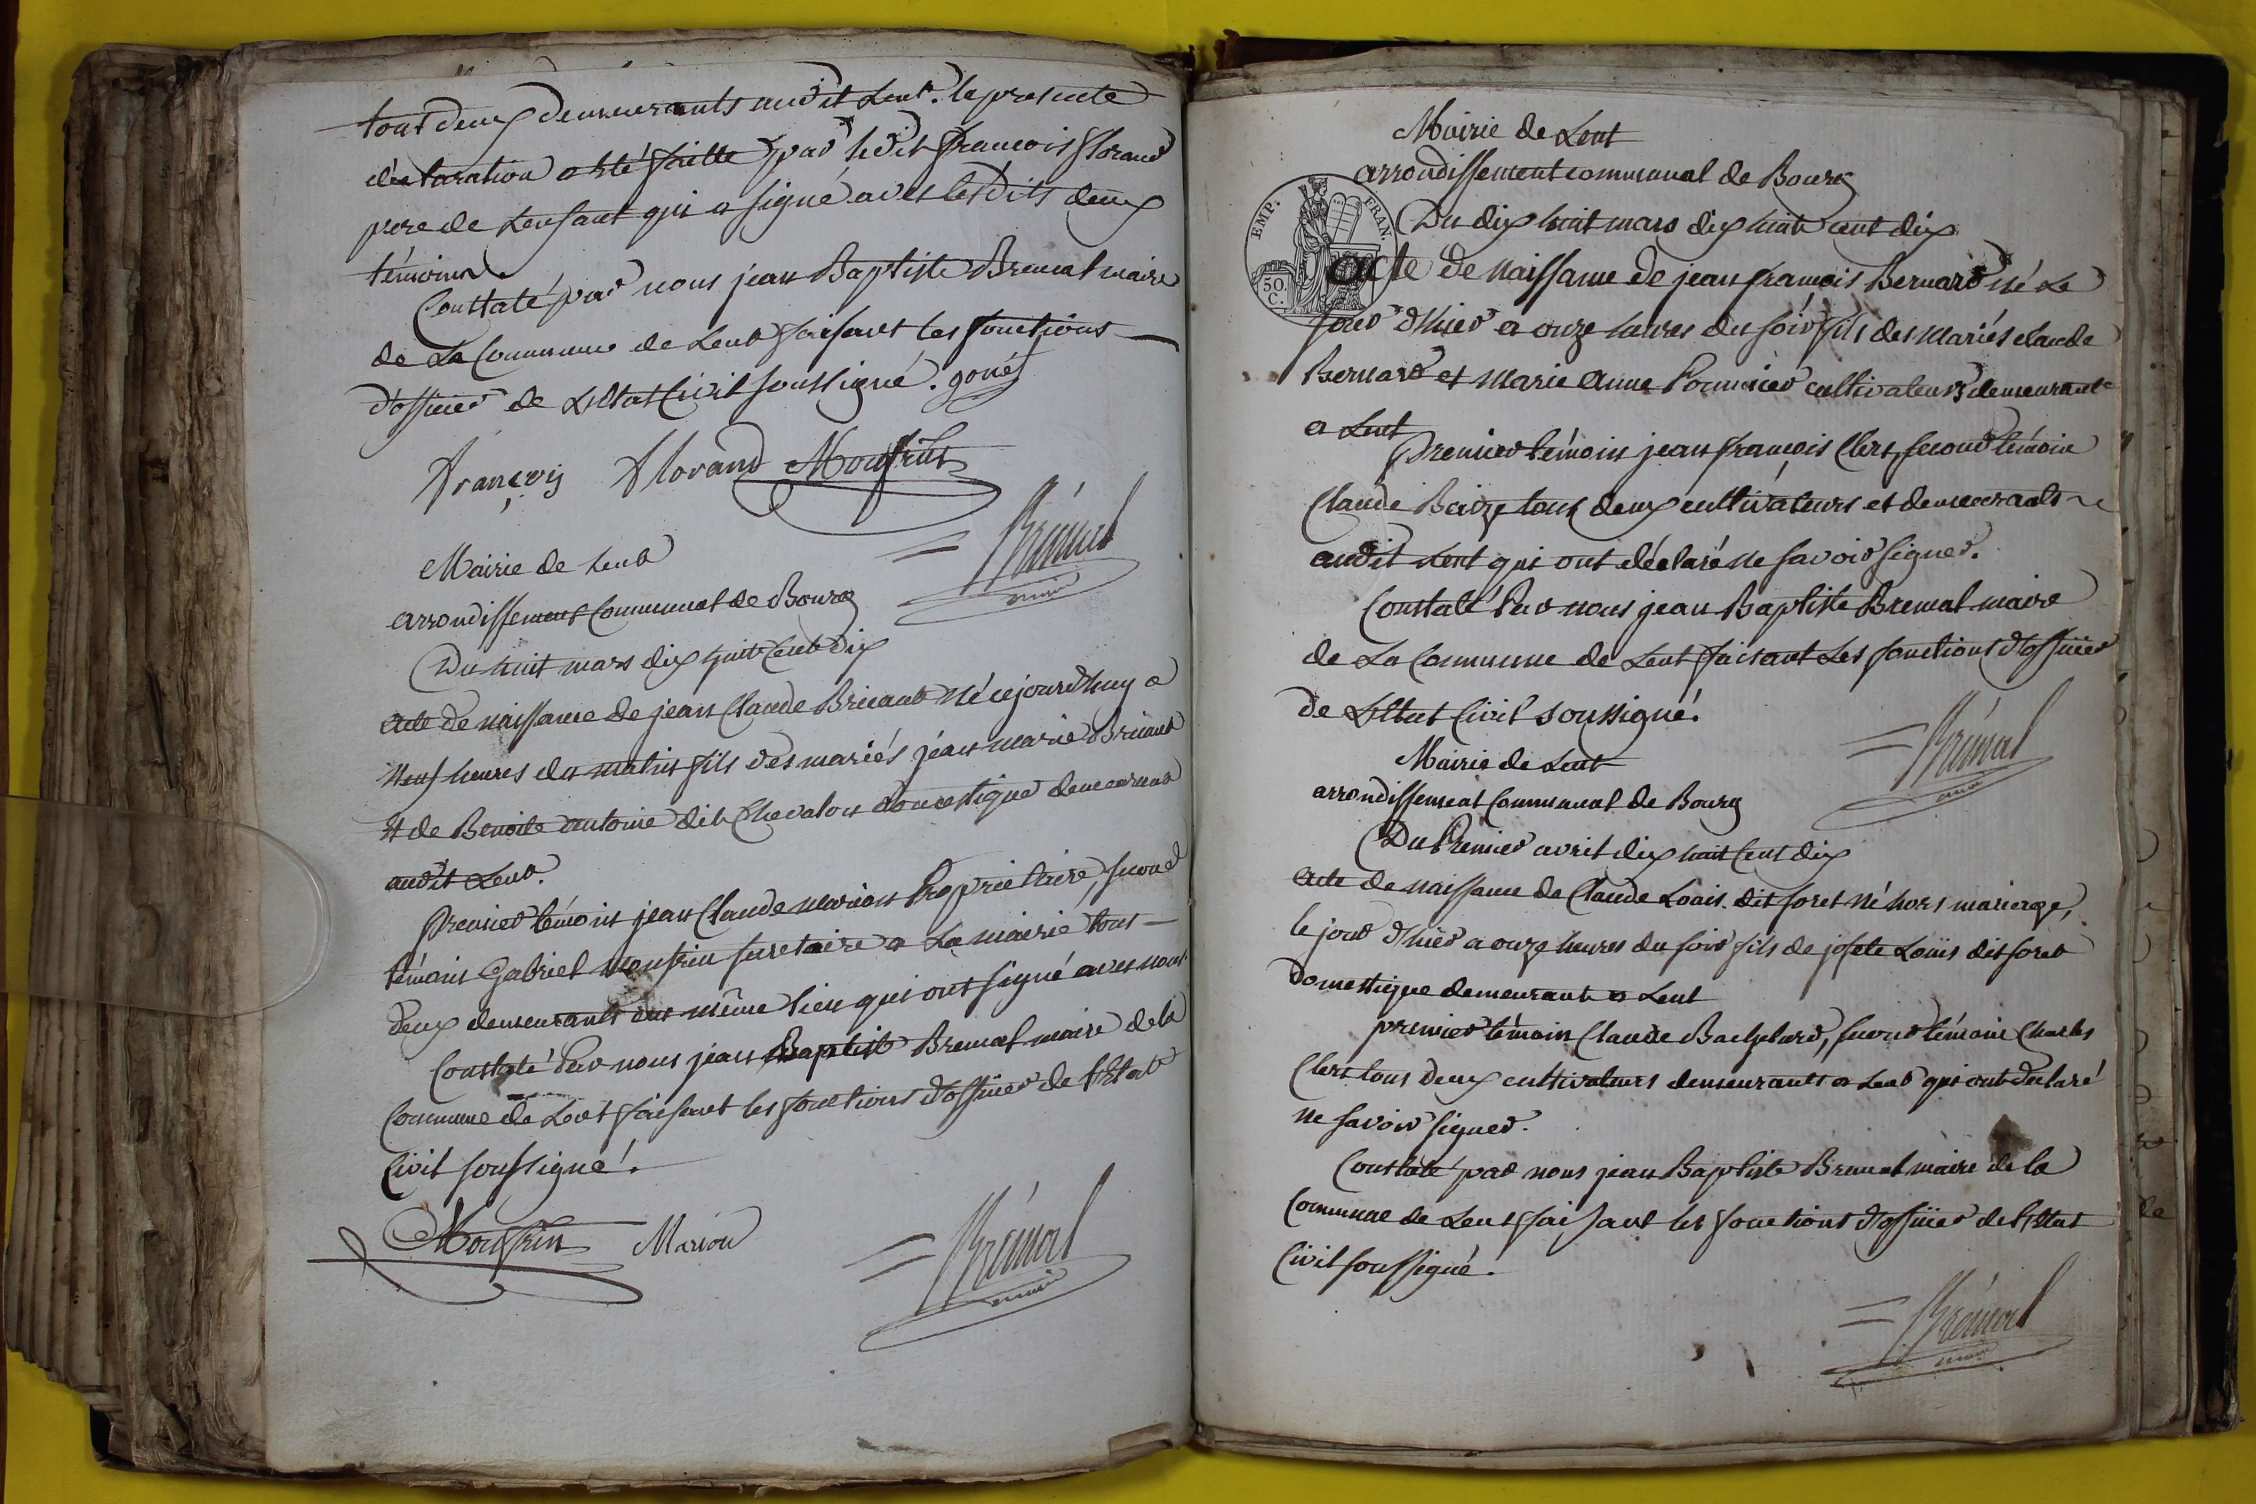 tous deux demeurants audit Lent. la presente
déclaration a été faitte par ledit francois florand
pere de Lenfant qui a signé avec lesdits deux
témoins
Constaté par nous jean Baptiste Bremal maire
de La Commune de Lent faisant les fonctions
d'officier de L'Etat Civil soussigné.
François Florand Monfrin
Brémal
maire
Mairie de Lent
arrondissement Communal de Bourg
Du huit mars dix huit Cent Dix
acte de naissance de jean Claude Briant né cejourdhuy a
Neuf heures du matin fils des mariés jean marie Briant
et de Benoite antoine dit Chevalon domestique demeurant
audit Lent.
premier témoin jean Claude marion Proprietaire, second
témoin Gabriel Monfrin secretaire a La mairie tous
deux demeurants au même lieu qui ont signé avec nous
Constaté Par nous jean Baptiste Bremal maire de la
Commune de Lent faisant les fonctions d'officier de l'Etat
Civil soussigné.
Monfrin Marion
Brémal
maire
Mairie de Lent
arrondissement communal de Bourg
EMP. FRAN.
50. C.
Du dix huit mars dix huit cent dix
acte de naissance de jean francois Bernard né Le
jour d'hier a onze heures du soir fils des mariés claude
Bernard et marie anne cultivateurs demeurant
a Lent
Premier témoin jean françois Clerc, second témoin
Claude tous deux cultivateurs et demeurants
audit Lent qui ont déclaré ne savoir signer.
Constaté Par nous jean Baptiste Bremal maire
de La Commune de Lent faisant Les fonctions d'officier
de L'Etat Civil soussigné.
Brémal
maire
Mairie de Lent
arrondissement Communal de Bourg
Du Premier avril dix huit Cent dix
acte de naissance de Claude Louis dit foret né hors mariage,
le jour d'hier a onze heures du soir fils de josete Louis dit foret
domestique demeurant a Lent
premier témoin Claude Bachelard, second témoin Charles
Clerc tous deux cultivateurs demeurants a Lent qui ont declaré
ne savoir signer.
Constaté par nous jean Baptiste Bremal maire de la
Commune de Lent faisant les fonctions d'officier de L'Etat
Civil soussigné.
Brémal
maire